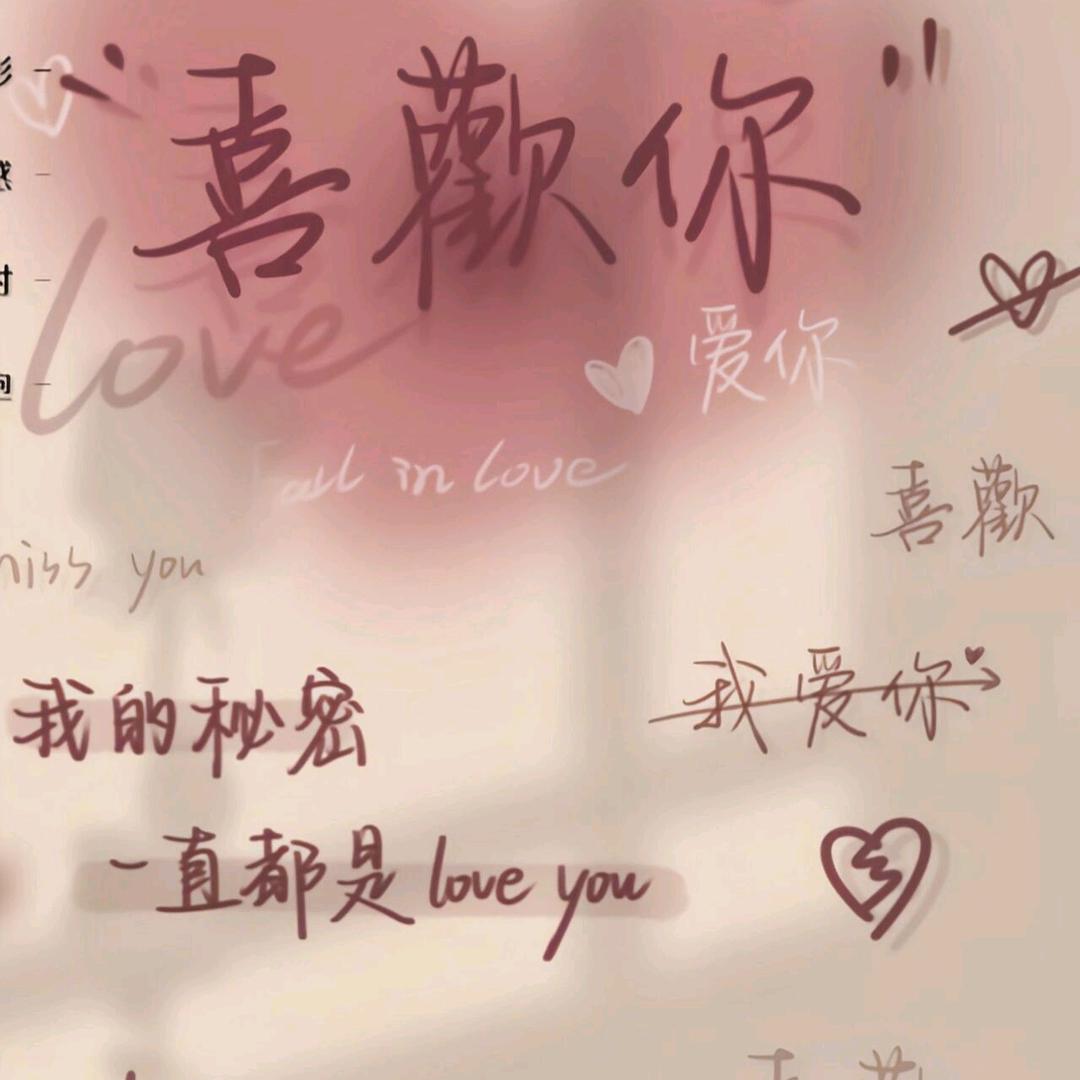 "喜歡你"
love
爱你
Fall in love
喜歡
miss you
我爱你
我的秘密
一直都是love you